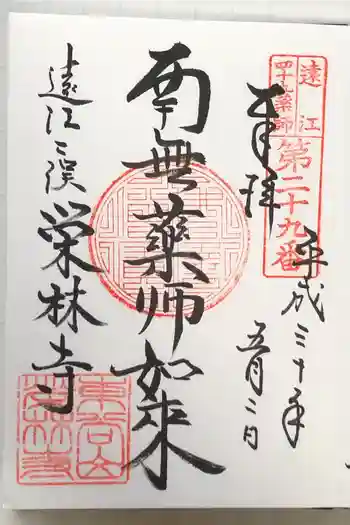 遠江
四十九薬師
第二十九番
奉拝
平成三十年
五月二日
南無薬師如来
遠江三渓
栄林寺